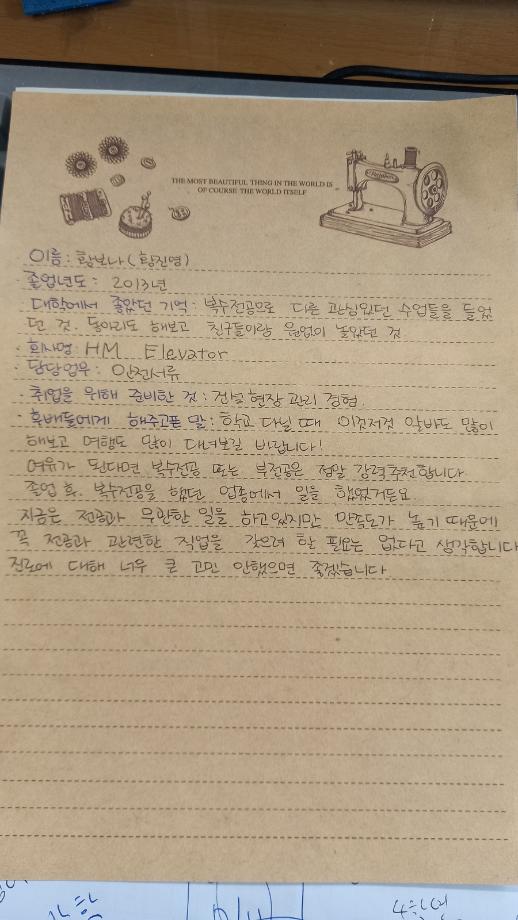 THE MOST BEAUTIFUL THING IN THE WORLD IS
OF COURSE THE WORLD ITSELF
이름 : 황보나 (황진영)
졸업년도 : 2013년
대학에서 좋았던 기억 : 복수전공으로 다른 관심있던 수업들을 들었
던 것. 동아리도 해보고 친구들이랑 원없이 놀았던 것
· 회사명 : HM Elevator
· 담당업무 : 안전서류
· 취업을 위해 준비한 것 : 건설현장 관리 경험.
· 후배들에게 해주고픈 말 : 학교 다닐 때 이것저것 알바도 많이
해보고 여행도 많이 다녀보길 바랍니다!
여유가 된다면 복수전공 또는 부전공은 정말 강력추천합니다
졸업 후. 복수전공을 했던 업종에서 일을 했었거든요
지금은 전공과 무관한 일을 하고있지만 만족도가 높기 때문에!!
꼭 전공과 관련한 직업을 갖으려 할 필요는 없다고 생각합니다
진로에 대해 너무 큰 고민 안했으면 좋겠습니다